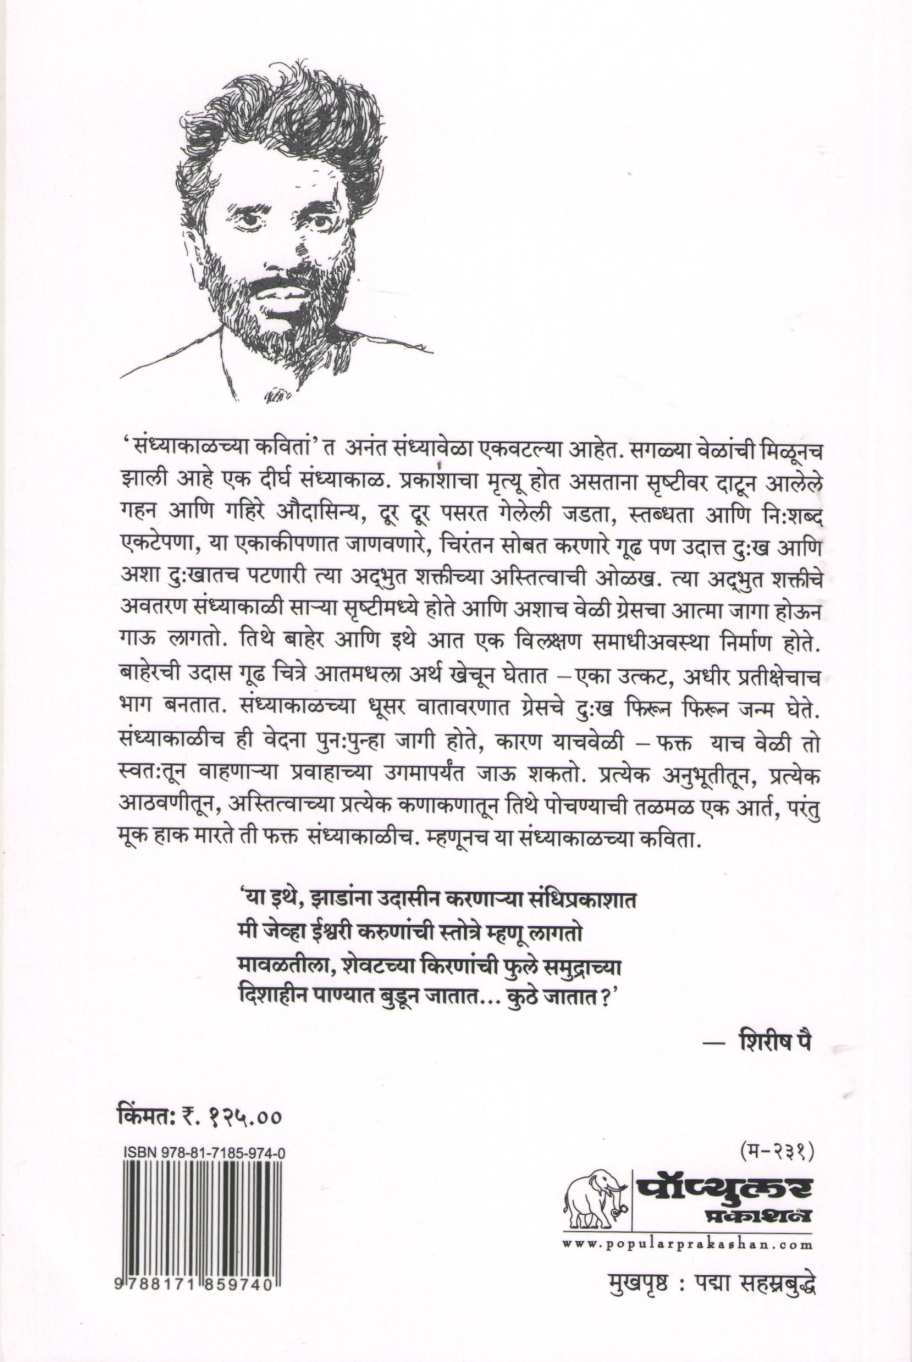 ‘संध्याकाळच्या कवितां’ त अनंत संध्यावेळा एकवटल्या आहेत. सगळ्या वेळांची मिळूनच
झाली आहे एक दीर्घ संध्याकाळ. प्रकाशाचा मृत्यू होत असताना सृष्टीवर दाटून आलेले
गहन आणि गहिरे औदासिन्य, दूर दूर पसरत गेलेली जडता, स्तब्धता आणि निःशब्द
एकटेपणा, या एकाकीपणात जाणवणारे, चिरंतन सोबत करणारे गूढ पण उदात्त दुःख आणि
अशा दुःखातच पटणारी त्या अद्‌भुत शक्तीच्या अस्तित्वाची ओळख. त्या अद्‌भुत शक्तीचे
अवतरण संध्याकाळी साऱ्या सृष्टीमध्ये होते आणि अशाच वेळी ग्रेसचा आत्मा जागा होऊन
गाऊ लागतो. तिथे बाहेर आणि इथे आत एक विलक्षण समाधीअवस्था निर्माण होते.
बाहेरची उदास गूढ चित्रे आतमधला अर्थ खेचून घेतात – एका उत्कट, अधीर प्रतीक्षेचाच
भाग बनतात. संध्याकाळच्या धूसर वातावरणात ग्रेसचे दुःख फिरून फिरून जन्म घेते.
संध्याकाळीच ही वेदना पुनःपुन्हा जागी होते, कारण याचवेळी – फक्त याच वेळी तो
स्वतःतून वाहणाऱ्या प्रवाहाच्या उगमापर्यंत जाऊ शकतो. प्रत्येक अनुभूतीतून, प्रत्येक
आठवणीतून, अस्तित्वाच्या प्रत्येक कणाकणातून तिथे पोचण्याची तळमळ एक आर्त, परंतु
मूक हाक मारते ती फक्त संध्याकाळीच. म्हणूनच या संध्याकाळच्या कविता.
‘या इथे, झाडांना उदासीन करणाऱ्या संधिप्रकाशात
मी जेव्हा ईश्वरी करुणांची स्तोत्रे म्हणू लागतो
मावळतीला, शेवटच्या किरणांची फुले समुद्राच्या
दिशाहीन पाण्यात बुडून जातात... कुठे जातात ?’
— शिरीष पै
किंमत: ₹. १२५.००
ISBN 978-81-7185-974-0
9 788171 859740
(म-२३१)
पॉप्युलर
प्रकाशन
www.popularprakashan.com
मुखपृष्ठ : पद्मा सहस्रबुद्धे